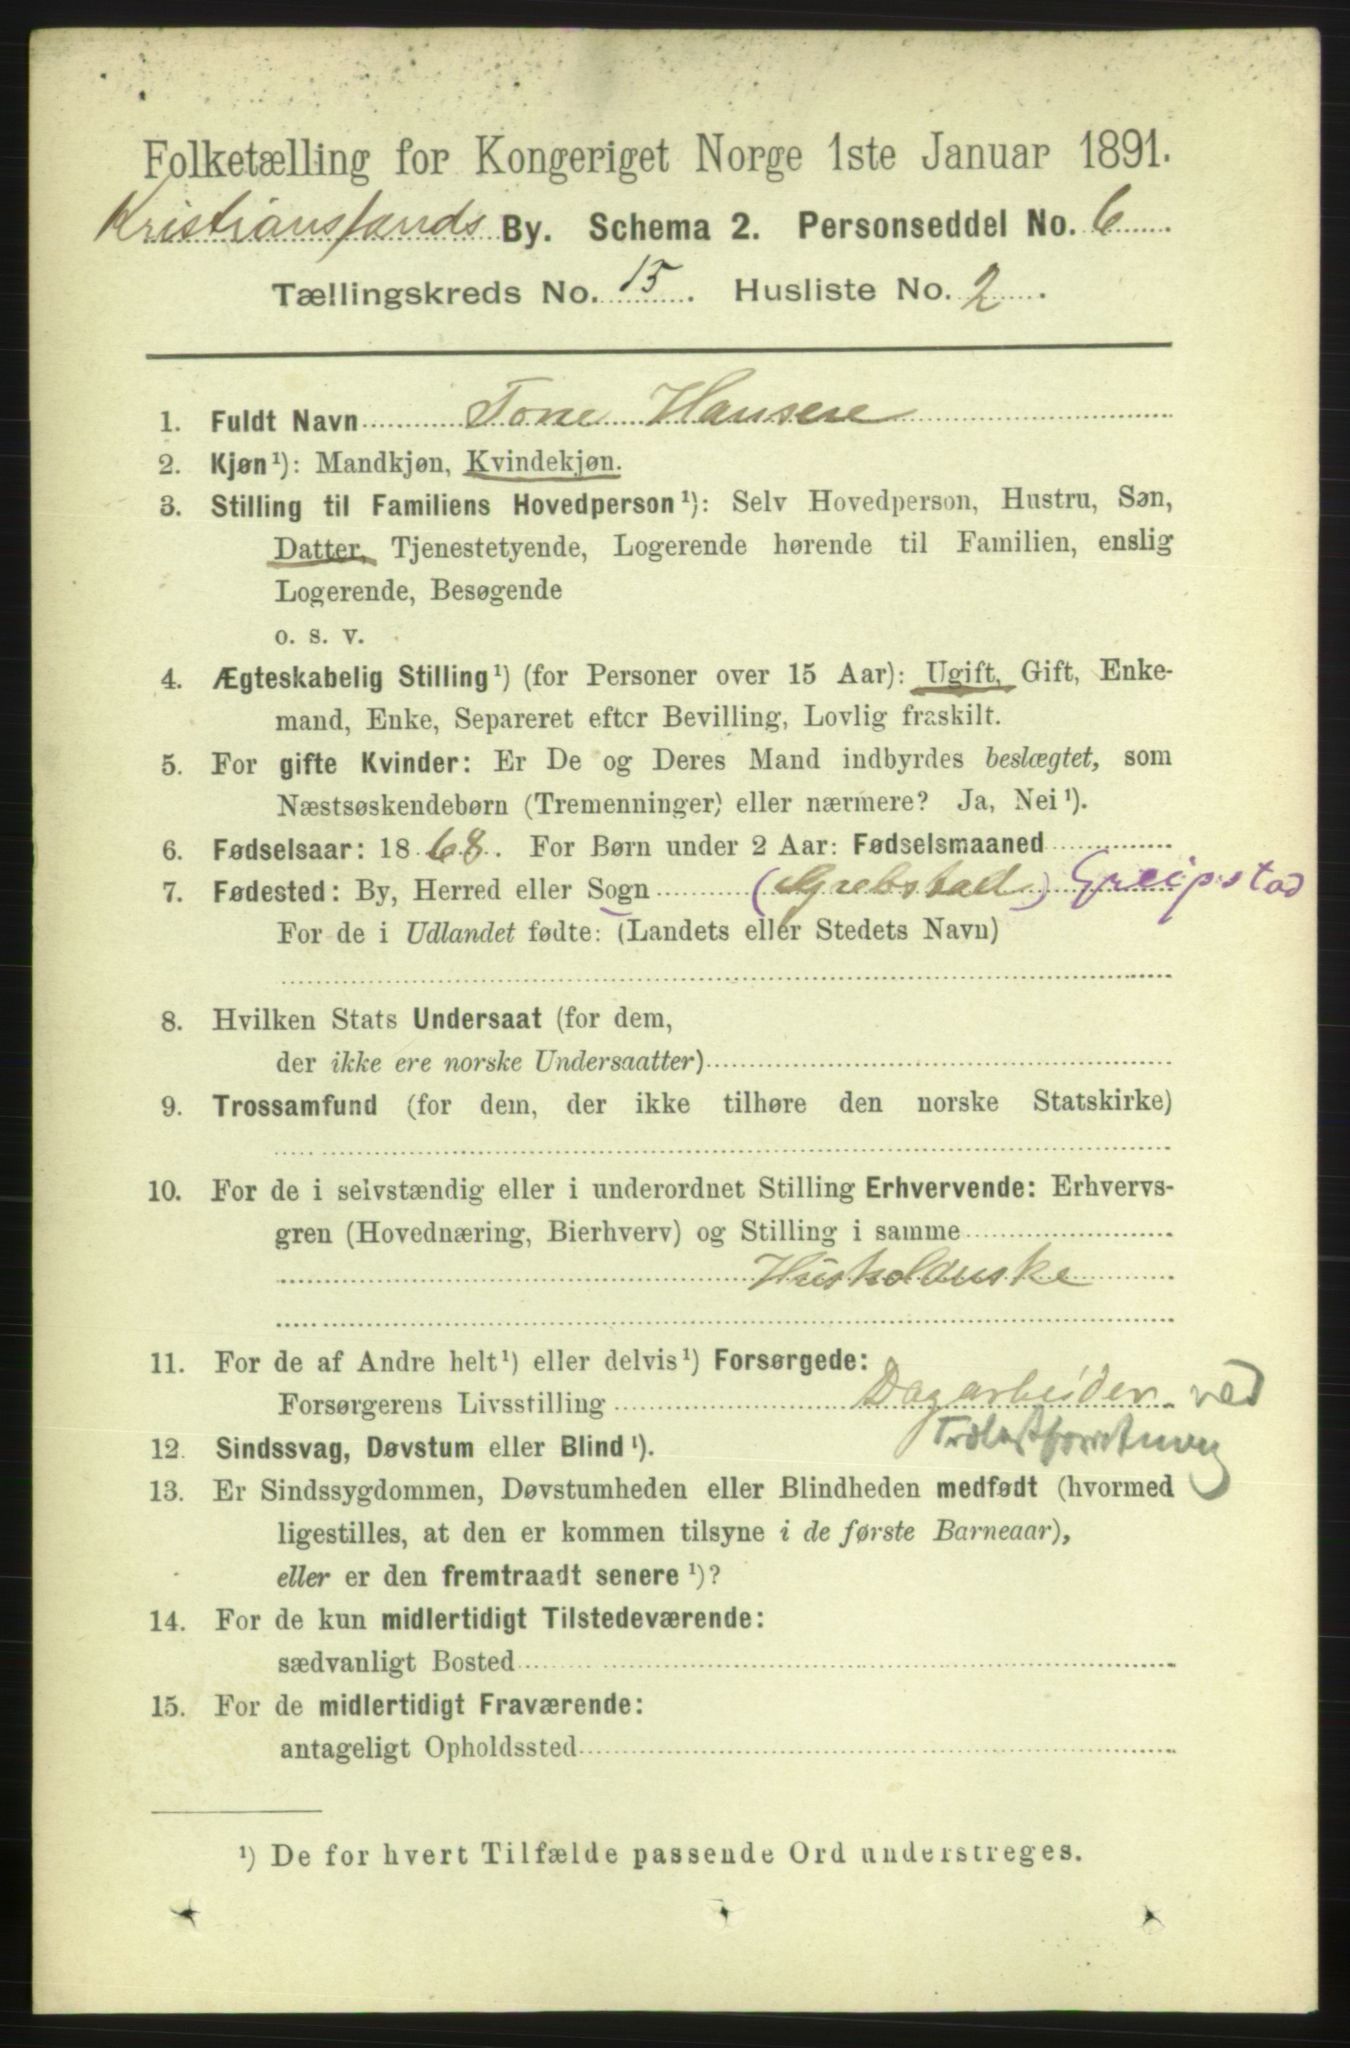 Folketælling for Kongeriget Norge 1ste Januar 1891.
Kristianssands By. Schema 2. Personseddel No. 6
Tællingskreds No. 15. Husliste No. 2.
1. Fuldt Navn Tone Hansen
2. Kjøn¹): Mandkjøn, Kvindekjøn.
3. Stilling til Familiens Hovedperson¹): Selv Hovedperson, Hustru, Søn,
Datter, Tjenestetyende, Logerende hørende til Familien, enslig
Logerende, Besøgende
o. s. v.
4. Ægteskabelig Stilling¹) (for Personer over 15 Aar): Ugift, Gift, Enke-
mand, Enke, Separeret efter Bevilling, Lovlig fraskilt.
5. For gifte Kvinder: Er De og Deres Mand indbyrdes beslægtet, som
Næstsøskendebørn (Tremenninger) eller nærmere? Ja, Nei¹).
6. Fødselsaar: 1868. For Børn under 2 Aar: Fødselsmaaned
7. Fødested: By, Herred eller Sogn (Grebstad) Greipstad
For de i Udlandet fødte: (Landets eller Stedets Navn)
8. Hvilken Stats Undersaat (for dem,
der ikke ere norske Undersaatter)
9. Trossamfund (for dem, der ikke tilhøre den norske Statskirke)
10. For de i selvstændig eller i underordnet Stilling Erhvervende: Erhvervs-
gren (Hovednæring, Bierhverv) og Stilling i samme
Husholderske
11. For de af Andre helt¹) eller delvis¹) Forsørgede:
Forsørgerens Livsstilling Dagarbeider ved
Trælastforretning
12. Sindssvag, Døvstum eller Blind¹).
13. Er Sindssygdommen, Døvstumheden eller Blindheden medfødt (hvormed
ligestilles, at den er kommen tilsyne i de første Barneaar),
eller er den fremtraadt senere¹)?
14. For de kun midlertidigt Tilstedeværende:
sædvanligt Bosted
15. For de midlertidigt Fraværende:
antageligt Opholdssted
¹) De for hvert Tilfælde passende Ord understreges.